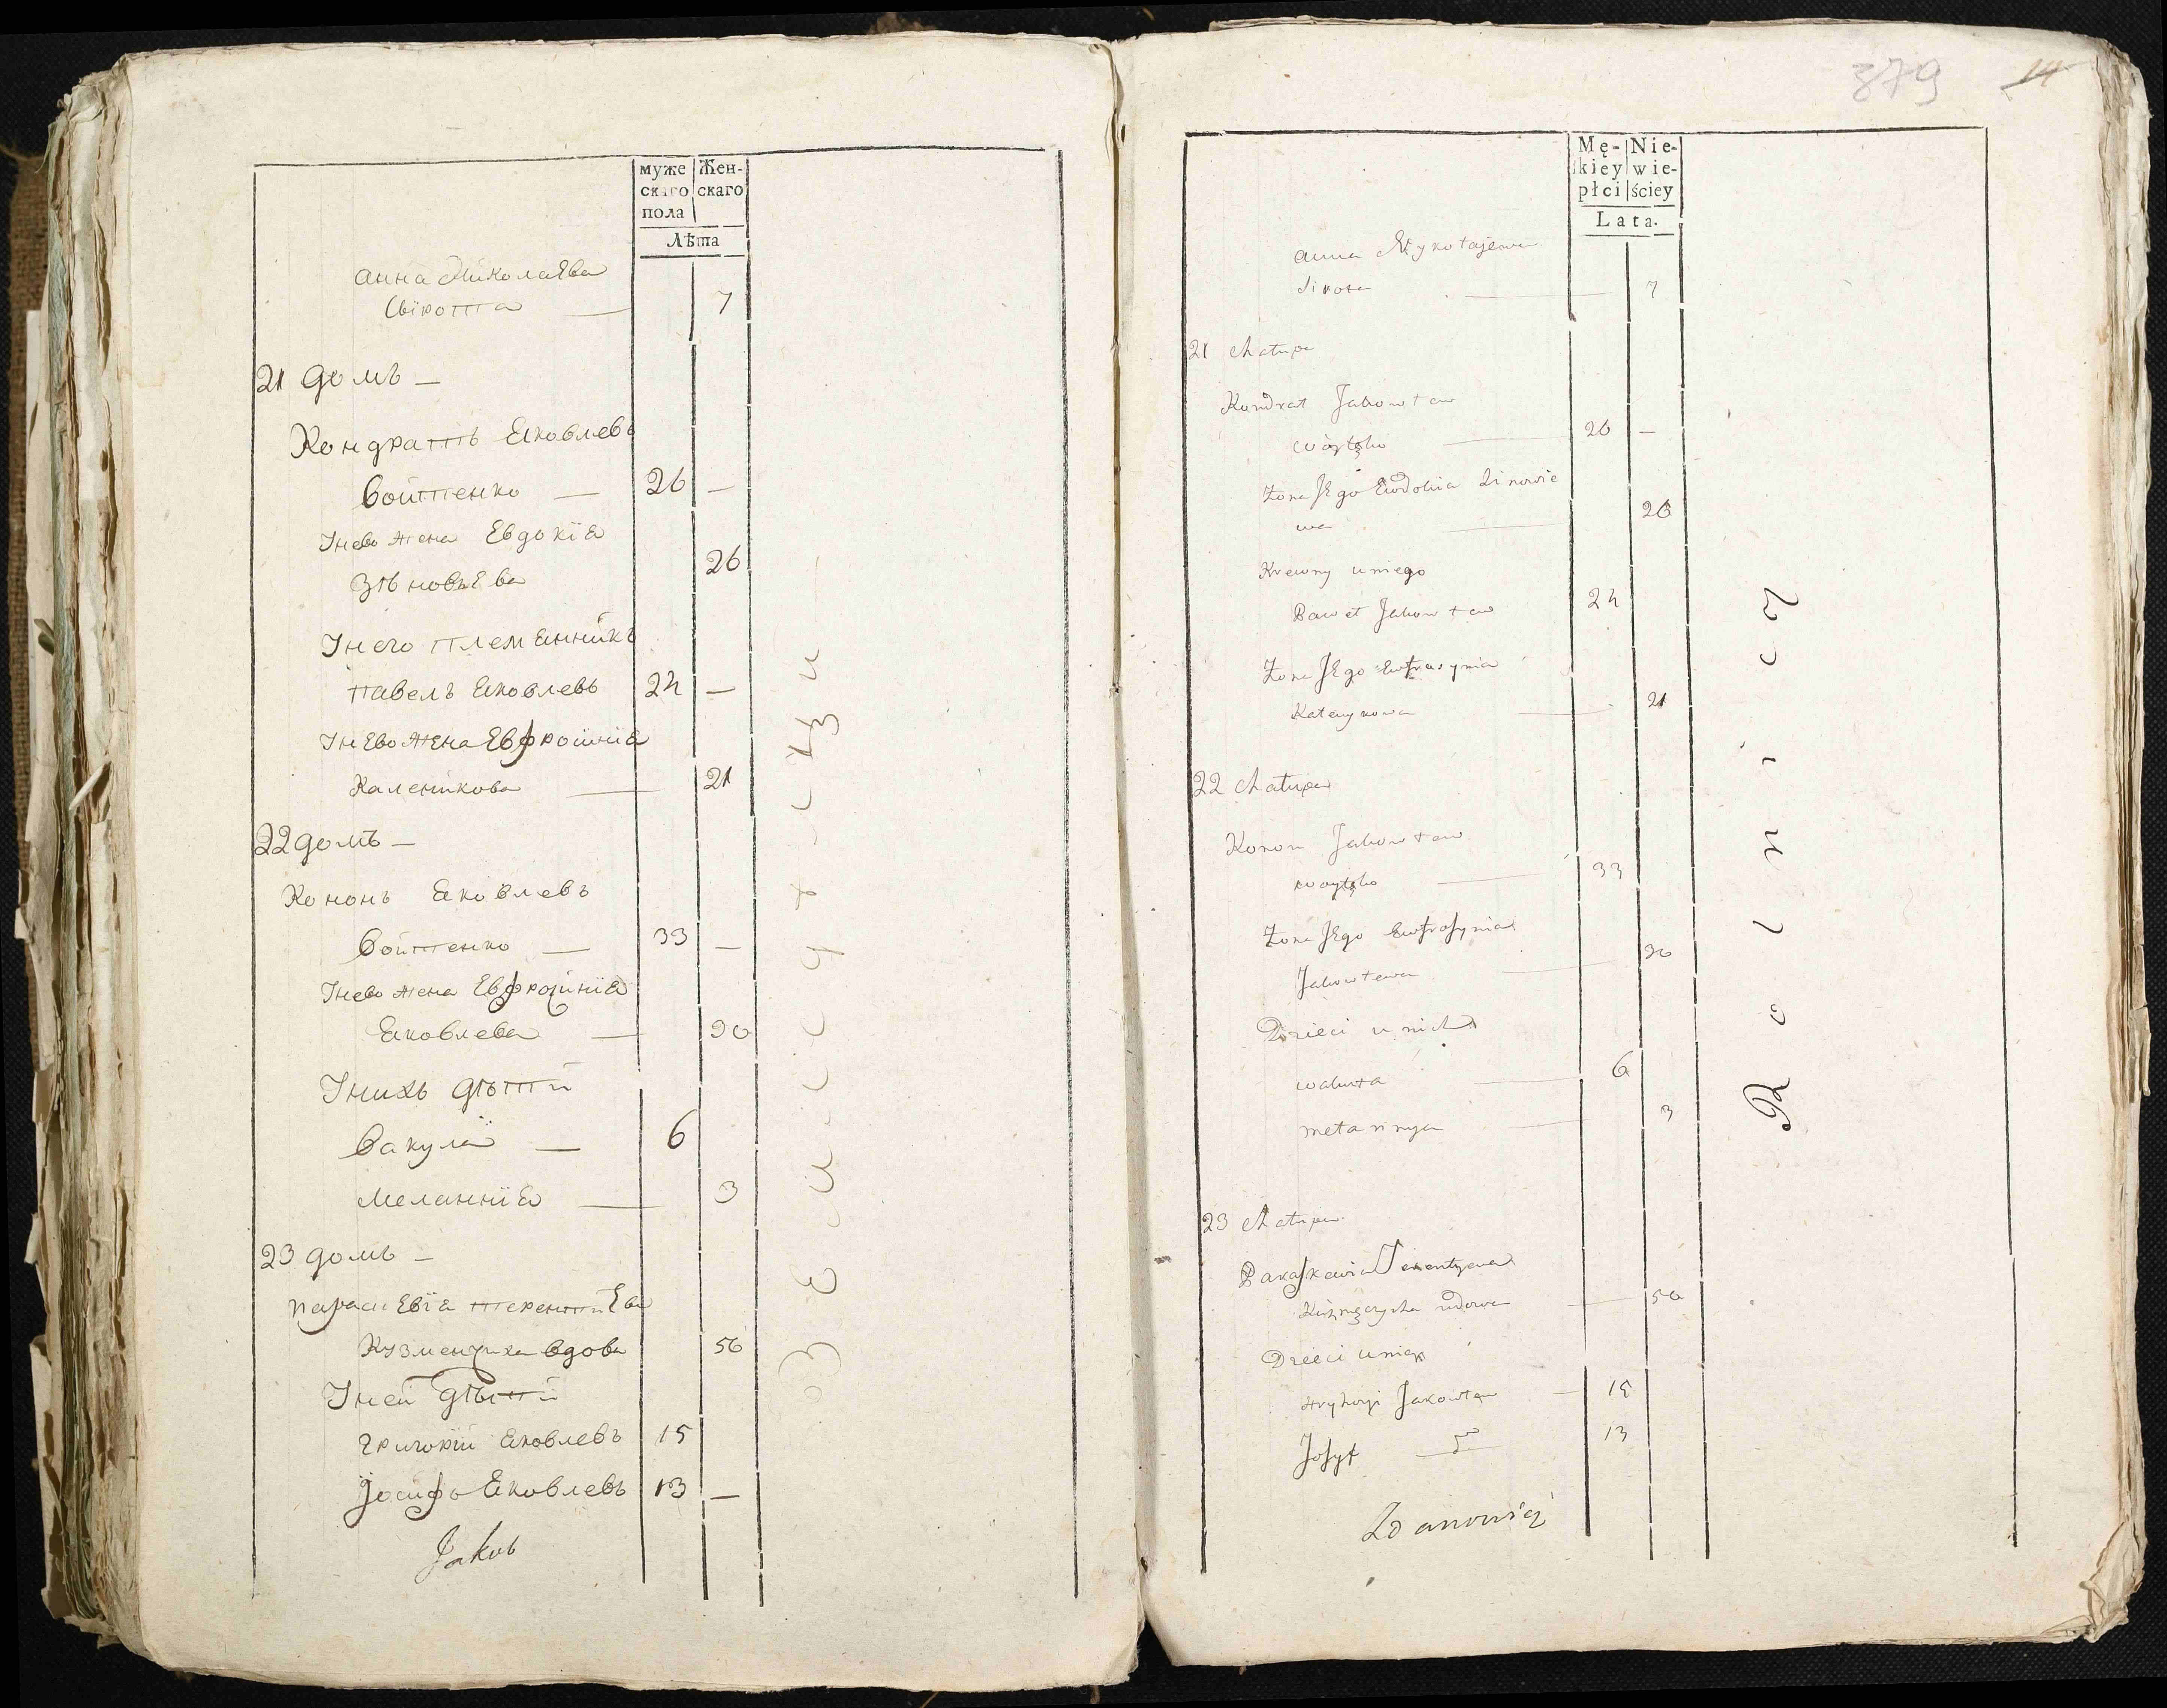 муже
скаго
пола
Жен-
скаго
Лѣта
Анна Миколаева
Сирота — 7
21 домъ —
Кондратъ Яковлевъ
Войтенко — 26 —
У нево жена Евдокїя
Зѣновьева 26
У него племянникъ
Павелъ Яковлевъ 24 —
У нево жена Евфросинїя
Каленикова — 21
22 домъ —
Кононъ Яковлевъ
Войтенко — 33 —
У нево жена Евфросинїя
Яковлева — 30
У нихъ дѣти
Вакула — 6
Меланнїя — 3
23 домъ —
Параскевїя Терентиева
Кузменчиха вдова 56
У ней дѣти
Григорий Яковлевъ 15
Иосифъ Яковлевъ 13 —
Jakub
379
14
Mę-
skiey
płci
Nie-
wie-
ściey
Lata.
Anna Mykołajewa
Sirota — 7
21 Chałupa
Kondrat Jakowlew
Woytęko — 26 —
Żona Jego Ewdokia Zinowie
wa — 26
Krewny u niego
Paweł Jakowlew 24
Żona Jego Ewfrasynia
Kalenykowa — 21
22 Chałupa
Konon Jakowlew
Woytęko — 33
Żona Jego Ewfrosynia
Jakowlewa — 30
Dzieci u nich
Wakuła — 6
Mełannya — 3
23 Chałupa
Paraskewia Terentyewa
Kuźmęczycha wdowa — 56
Dzieci u niey
Hryhoryi Jakowlew — 15
Josyf — 13
Rolnicy